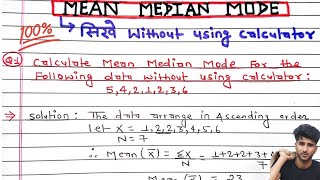 MEAN MEDIAN MODE
100% सिखे Without using calculator
Q:1 Calculate Mean Median Mode For the
Following data without using calculator:
5, 4, 2, 1, 2, 3, 6
⇒ Solution: The data arrange in Ascending order
let X = 1, 2, 2, 3, 4, 5, 6
N = 7
∴ Mean (x̄) = ΣX/N = 1+2+2+3+4
Mean (x̄) = 23